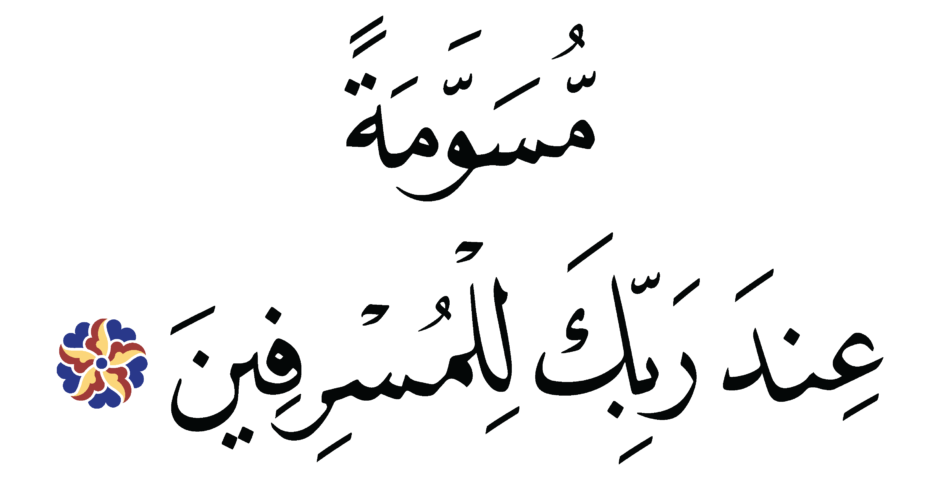 مُّسَوَّمَةً
عِندَ رَبِّكَ لِلْمُسْرِفِينَ